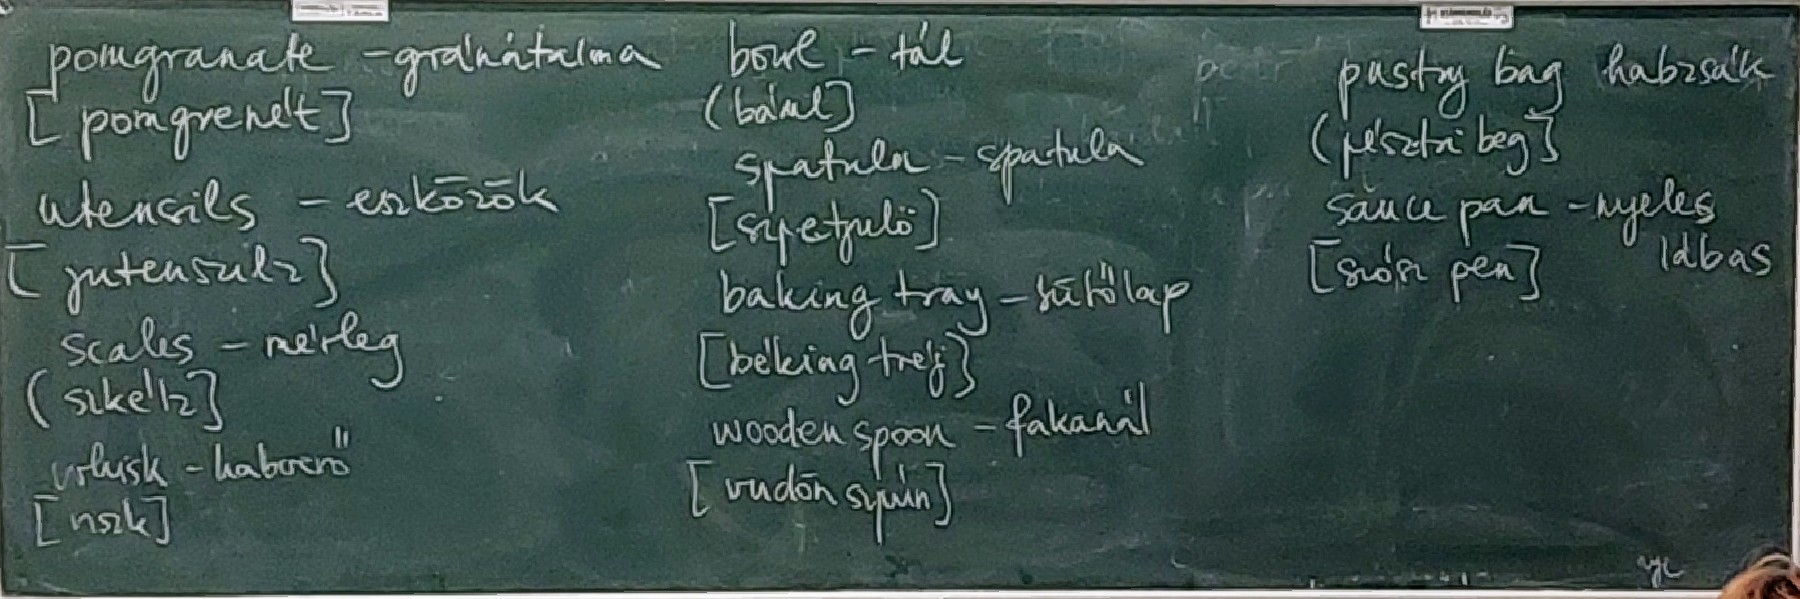 pomgranate - gránátalma
[pomgrenét]
utensils - eszközök
[jutenszilz]
scales - mérleg
(szkélz]
whisk - habverő
[viszk]
bowl - tál
(bául]
spatula - spatula
[szpetyulö]
baking tray - sütőlap
[béking tréj]
wooden spoon - fakanál
[vudön szpún]
pastry bag habzsák
(pésztri beg]
sauce pan - nyeles
lábas
[szósz pen]
nye